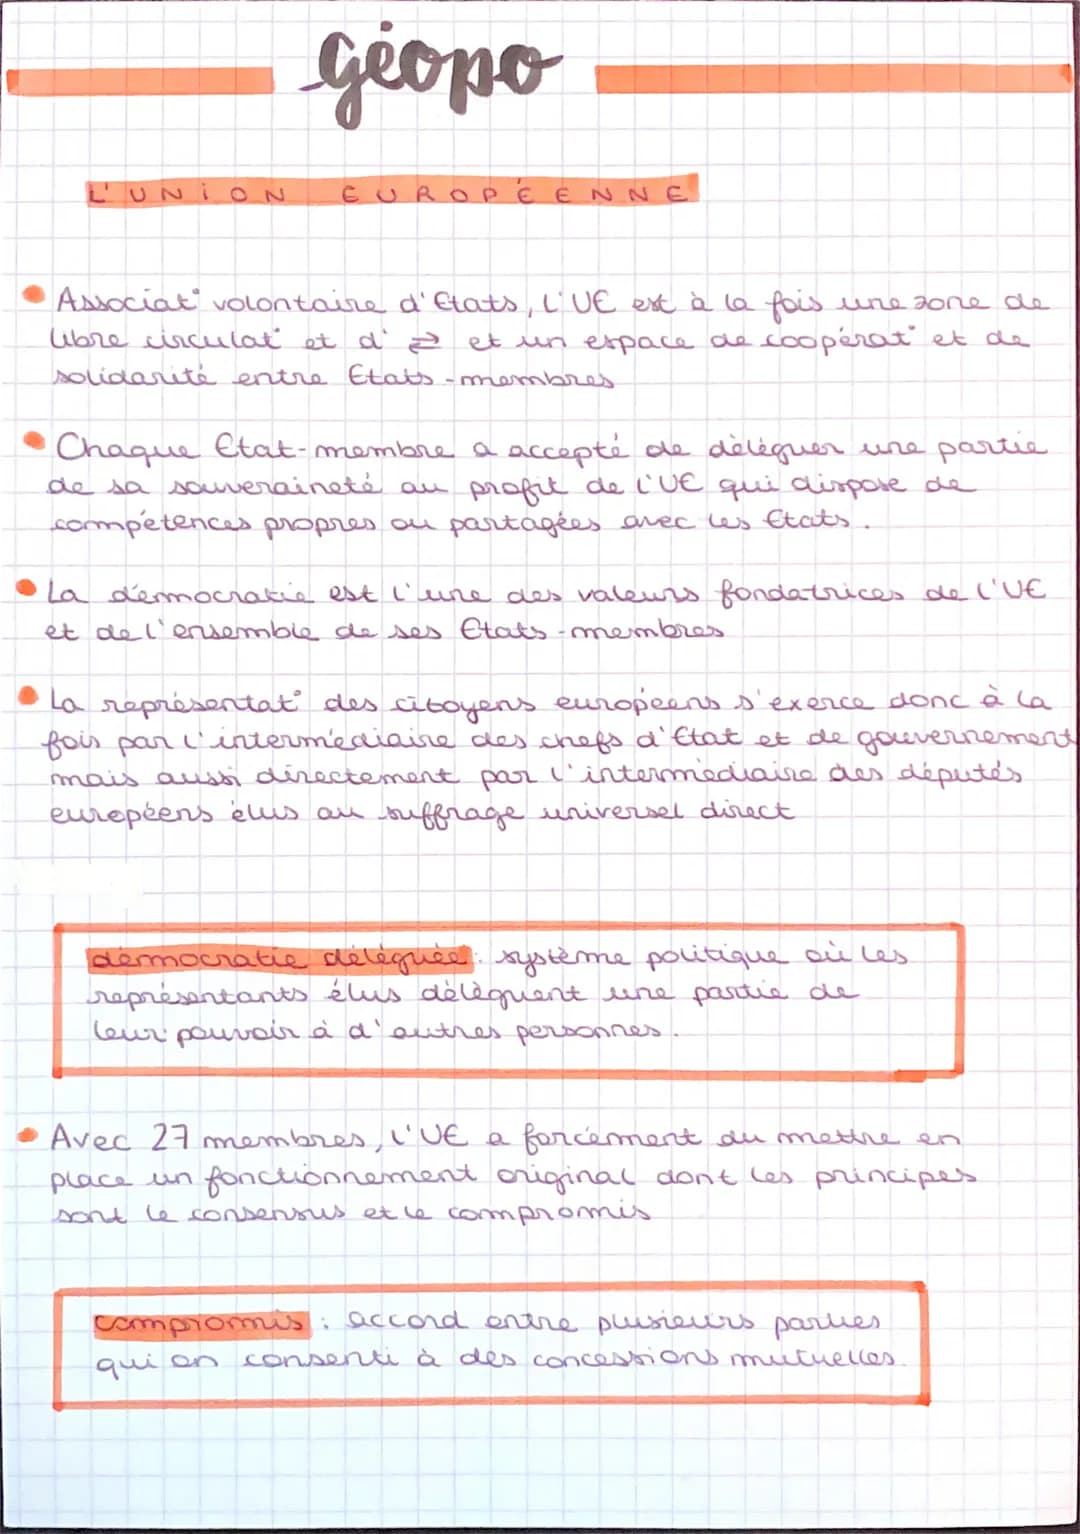 géopo
L'UNION EUROPÉENNE
• Associat° volontaire d'Etats, l'UE est à la fois une zone de
libre circulat° et d' ⇄ et un espace de coopérat° et de
solidarité entre Etats-membres
• Chaque Etat-membre a accepté de déléguer une partie
de sa souveraineté au profit de l'UE qui dispose de
compétences propres ou partagées avec les Etats.
• La démocratie est l'une des valeurs fondatrices de l'UE
et de l'ensemble de ses Etats-membres
• La représentat° des citoyens européens s'exerce donc à la
fois par l'intermédiaire des chefs d'Etat et de gouvernement
mais aussi directement par l'intermédiaire des députés
européens élus au suffrage universel direct
démocratie déléguée : système politique où les
représentants élus délèguent une partie de
leur pouvoir à d'autres personnes.
• Avec 27 membres, l'UE a forcément du mettre en
place un fonctionnement original dont les principes
sont le consensus et le compromis
compromis : accord entre plusieurs parties
qui on consenti à des concessions mutuelles.